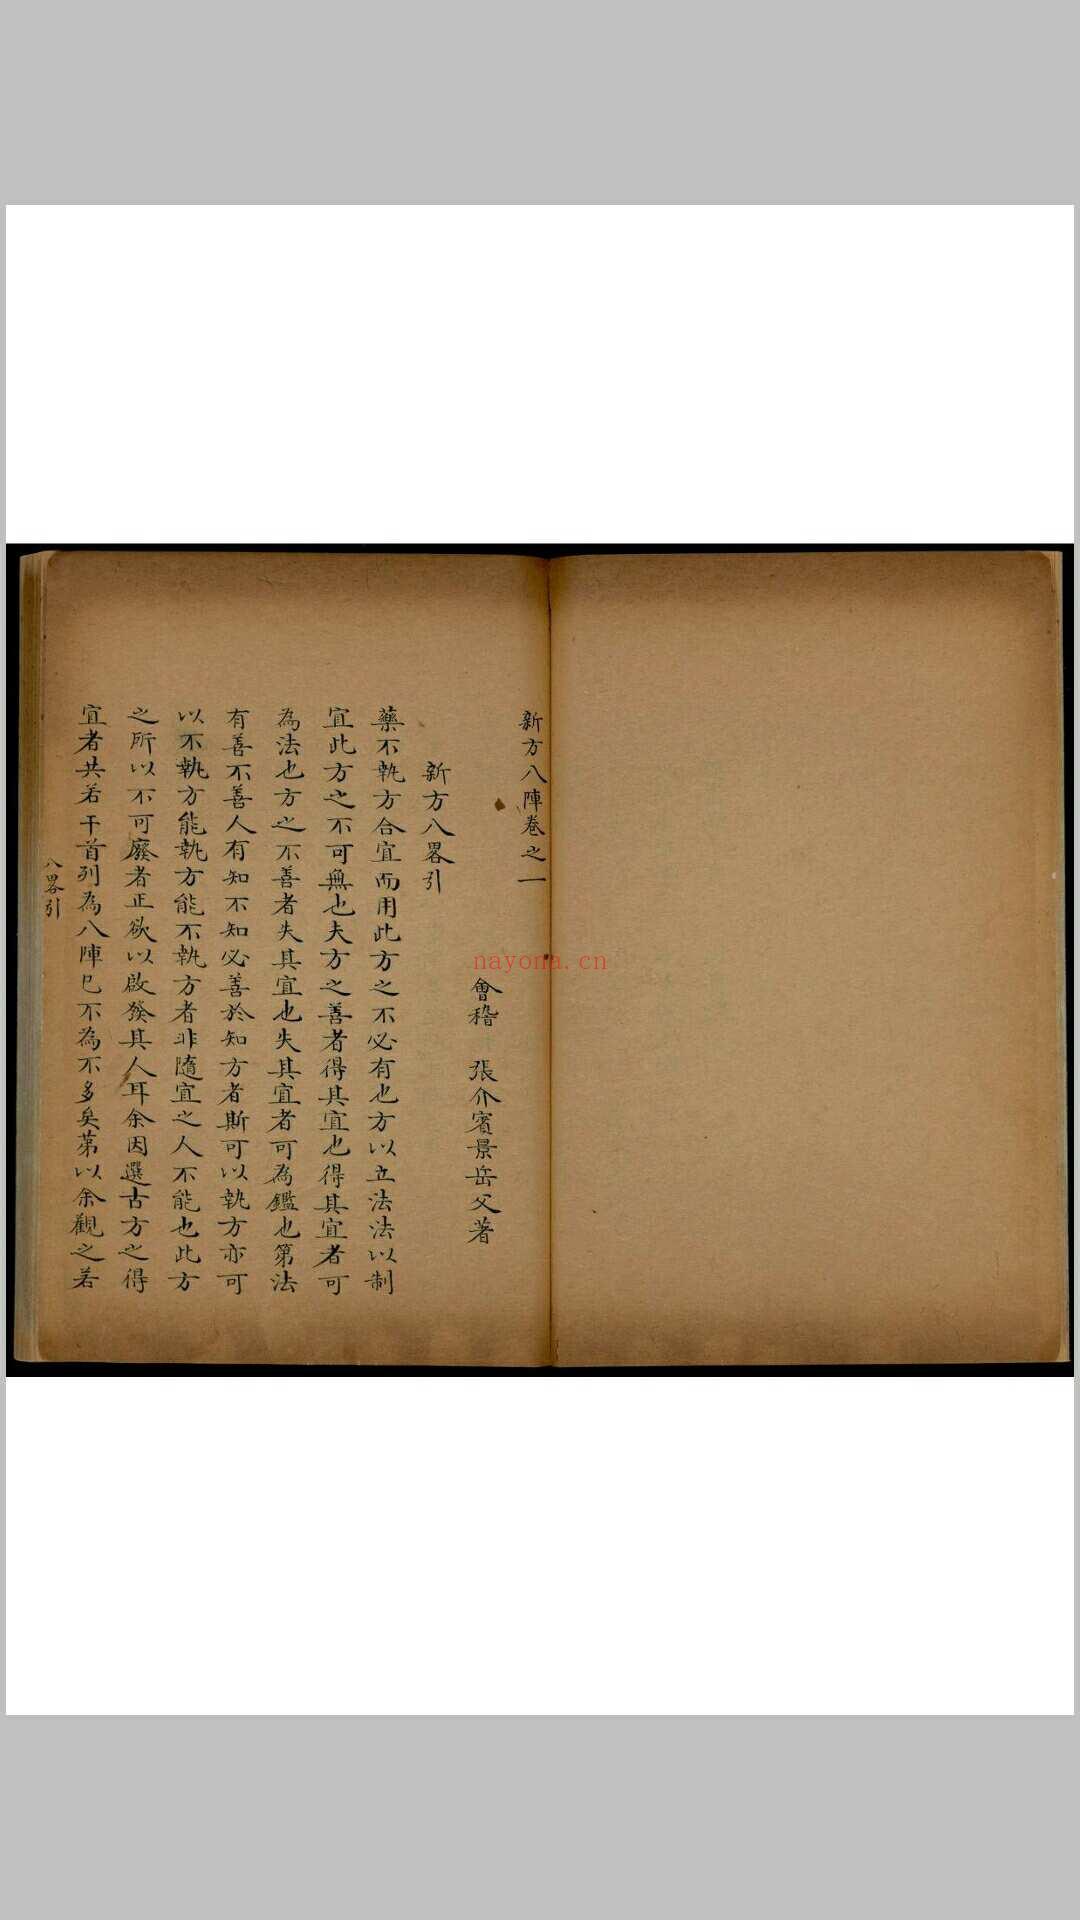 新方八陣卷之一
會稽 張介賓景岳父著
新方八畧引
藥不執方合宜而用此方之不必有也方以立法法以制
宜此方之不可無也夫方之善者得其宜也得其宜者可
為法也方之不善者失其宜也失其宜者可為鑑也第法
有善不善人有知不知必善於知方者斯可以執方亦可
以不執方能執方能不執方者非隨宜之人不能也此方
之所以不可廢者正欲以啟發其人耳余因選古方之得
宜者共若干首列為八陣已不為不多矣第以余觀之若
八畧引
nayona.cn